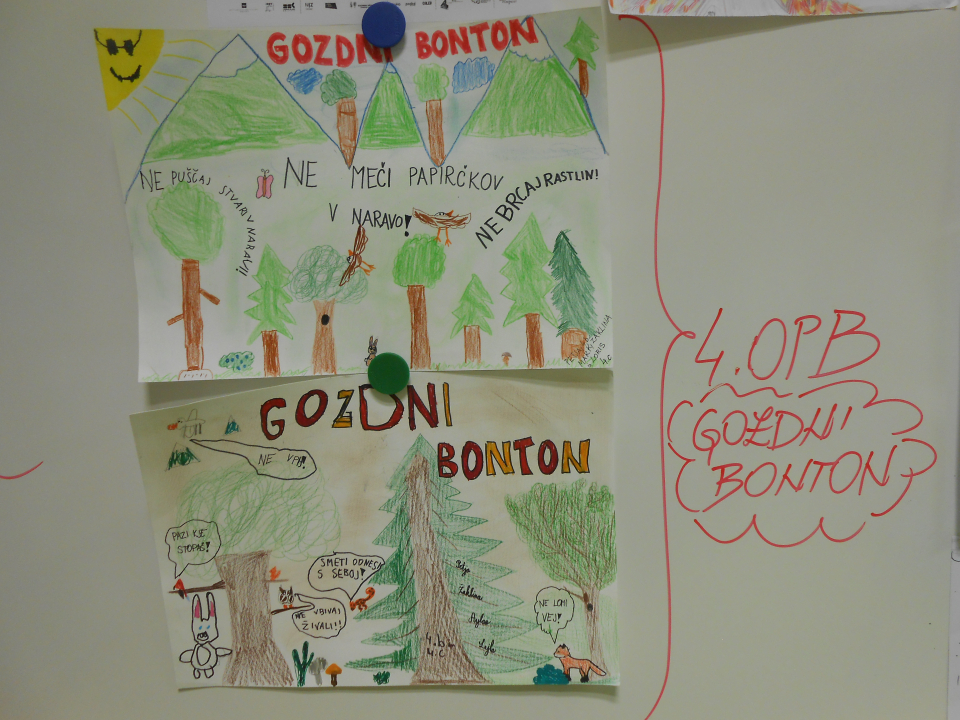 GOZDNI BONTON
NE PUŠČAJ STVARI V NARAVI!
NE MEČI PAPIRČKOV
V NARAVO!
NE BRCAJ RASTLIN!
ŽAKLINA
4.C
GOZDNI
BONTON
NE VPIJ!
PAZI KJE
STOPAŠ!
SMETI ODNESI
S SEBOJ!
NE UBIVAJ
ŽIVALI!!
NE LOMI
VEJ!
Žaklina
Lejla
4.b
4.c
4. OPB
GOZDNI
BONTON